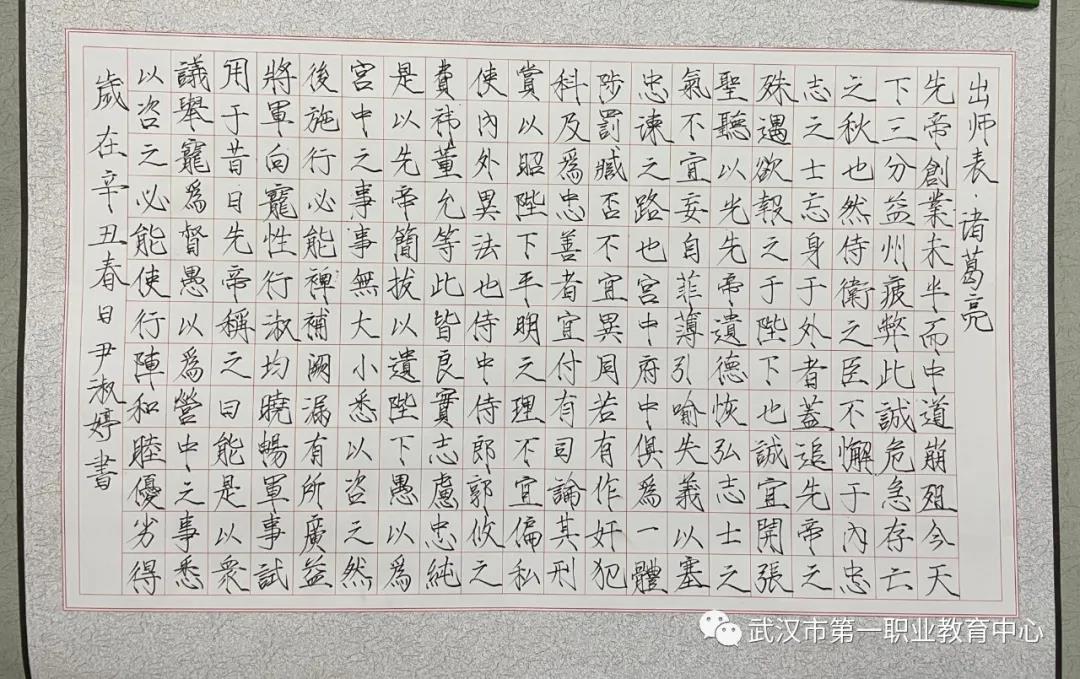 出师表·诸葛亮
先帝創業未半而中道崩殂今天
下三分益州疲弊此誠危急存亡
之秋也然侍衛之臣不懈于內忠
志之士忘身于外者蓋追先帝之
殊遇欲報之于陛下也誠宜開張
聖聽以光先帝遺德恢弘志士之
氣不宜妄自菲薄引喻失義以塞
忠諫之路也宮中府中俱爲一體
陟罰臧否不宜異同若有作奸犯
科及爲忠善者宜付有司論其刑
賞以昭陛下平明之理不宜偏私
使內外異法也侍中侍郎郭攸之
費祎董允等此皆良實志慮忠純
是以先帝簡拔以遺陛下愚以爲
宮中之事事無大小悉以咨之然
後施行必能裨補闕漏有所廣益
將軍向寵性行淑均曉暢軍事試
用于昔日先帝稱之曰能是以衆
議舉寵爲督愚以爲營中之事悉
以咨之必能使行陣和睦優劣得
歲在辛丑春日尹淑婷書
武汉市第一职业教育中心